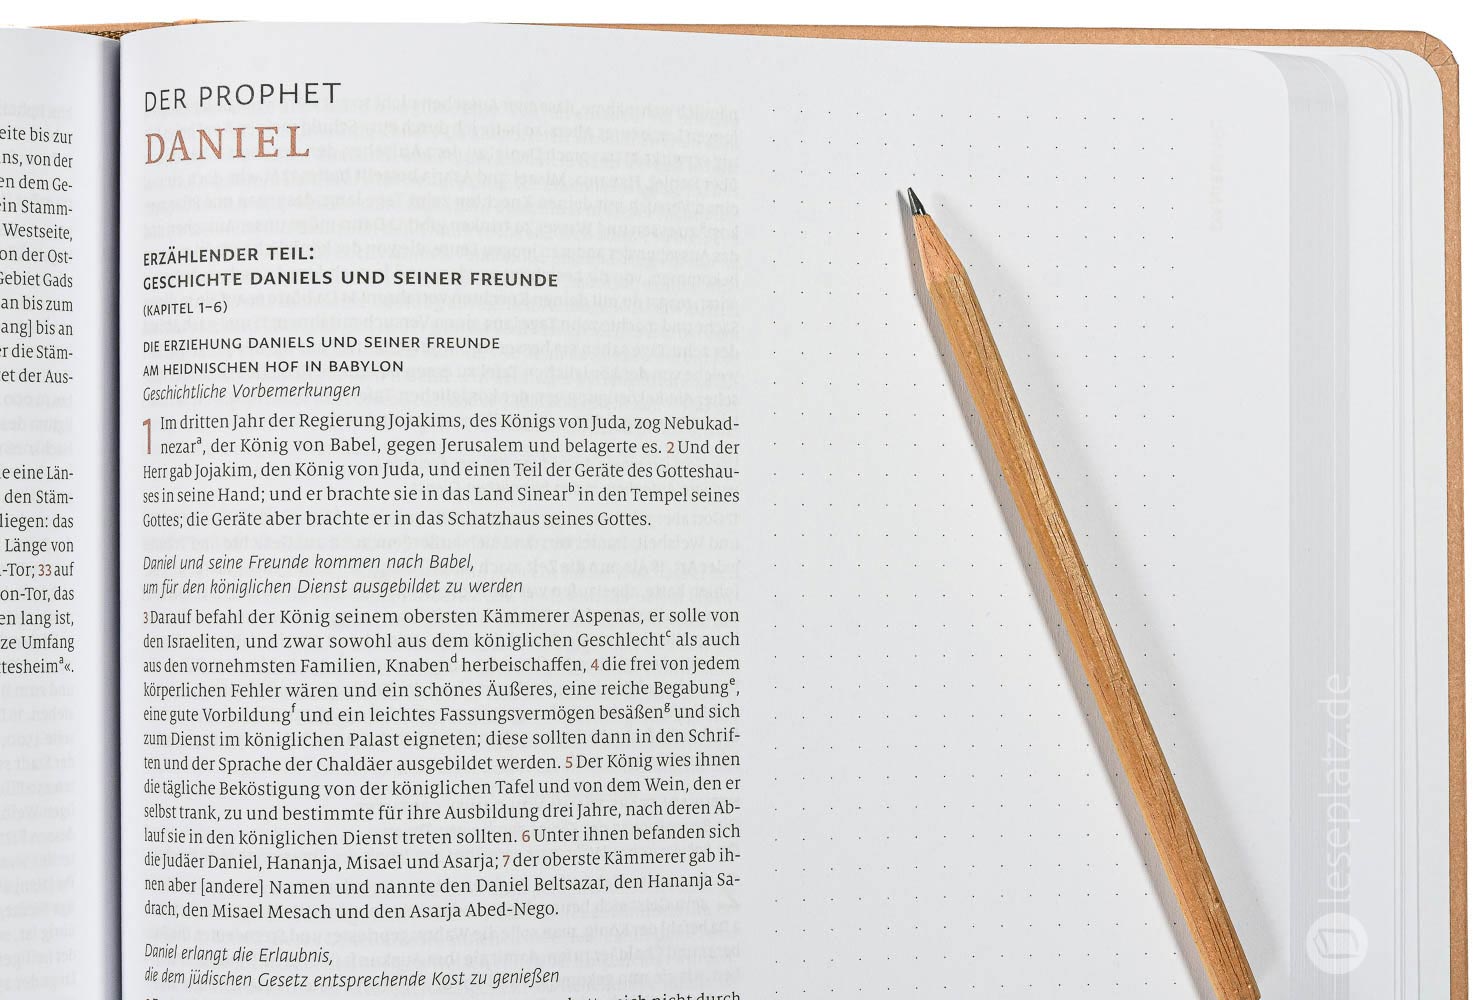 eite bis zur
ns, von der
en dem Ge-
ein Stamm-
Westseite,
on der Ost-
Gebiet Gads
an bis zum
ang] bis an
er die Stäm-
et der Aus-
e eine Län-
den Stäm-
liegen: das
Länge von
-Tor; 33 auf
on-Tor, das
en lang ist,
ze Umfang
ttesheimª«.
DER PROPHET
DANIEL
ERZÄHLENDER TEIL:
GESCHICHTE DANIELS UND SEINER FREUNDE
(KAPITEL 1–6)
DIE ERZIEHUNG DANIELS UND SEINER FREUNDE
AM HEIDNISCHEN HOF IN BABYLON
Geschichtliche Vorbemerkungen
1 Im dritten Jahr der Regierung Jojakims, des Königs von Juda, zog Nebukad-
nezarª, der König von Babel, gegen Jerusalem und belagerte es. 2 Und der
Herr gab Jojakim, den König von Juda, und einen Teil der Geräte des Gotteshau-
ses in seine Hand; und er brachte sie in das Land Sinearᵇ in den Tempel seines
Gottes; die Geräte aber brachte er in das Schatzhaus seines Gottes.
Daniel und seine Freunde kommen nach Babel,
um für den königlichen Dienst ausgebildet zu werden
3 Darauf befahl der König seinem obersten Kämmerer Aspenas, er solle von
den Israeliten, und zwar sowohl aus dem königlichen Geschlechtᶜ als auch
aus den vornehmsten Familien, Knabenᵈ herbeischaffen, 4 die frei von jedem
körperlichen Fehler wären und ein schönes Äußeres, eine reiche Begabungᵉ,
eine gute Vorbildungᶠ und ein leichtes Fassungsvermögen besäßenᵍ und sich
zum Dienst im königlichen Palast eigneten; diese sollten dann in den Schrif-
ten und der Sprache der Chaldäer ausgebildet werden. 5 Der König wies ihnen
die tägliche Beköstigung von der königlichen Tafel und von dem Wein, den er
selbst trank, zu und bestimmte für ihre Ausbildung drei Jahre, nach deren Ab-
lauf sie in den königlichen Dienst treten sollten. 6 Unter ihnen befanden sich
die Judäer Daniel, Hananja, Misael und Asarja; 7 der oberste Kämmerer gab ih-
nen aber [andere] Namen und nannte den Daniel Beltsazar, den Hananja Sa-
drach, den Misael Mesach und den Asarja Abed-Nego.
Daniel erlangt die Erlaubnis,
die dem jüdischen Gesetz entsprechende Kost zu genießen
sich nicht durch
leseplatz.de